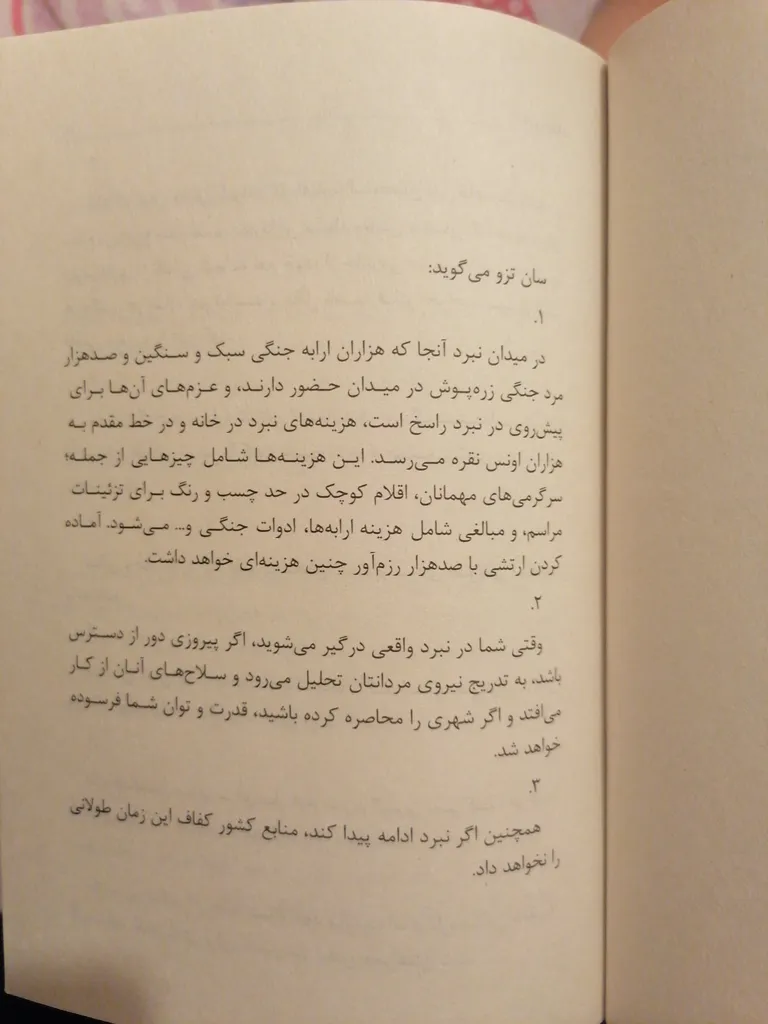 سان تزو می‌گوید:
۱.
در میدان نبرد آنجا که هزاران ارابه جنگی سبک و سنگین و صدهزار
مرد جنگی زره‌پوش در میدان حضور دارند، و عزم‌های آن‌ها برای
پیش‌روی در نبرد راسخ است، هزینه‌های نبرد در خانه و در خط مقدم به
هزاران اونس نقره می‌رسد. این هزینه‌ها شامل چیزهایی از جمله؛
سرگرمی‌های مهمانان، اقلام کوچک در حد چسب و رنگ برای تزئینات
مراسم، و مبالغی شامل هزینه ارابه‌ها، ادوات جنگی و... می‌شود. آماده
کردن ارتشی با صدهزار رزم‌آور چنین هزینه‌ای خواهد داشت.
۲.
وقتی شما در نبرد واقعی درگیر می‌شوید، اگر پیروزی دور از دسترس
باشد، به تدریج نیروی مردانتان تحلیل می‌رود و سلاح‌های آنان از کار
می‌افتد و اگر شهری را محاصره کرده باشید، قدرت و توان شما فرسوده
خواهد شد.
۳.
همچنین اگر نبرد ادامه پیدا کند، منابع کشور کفاف این زمان طولانی
را نخواهد داد.